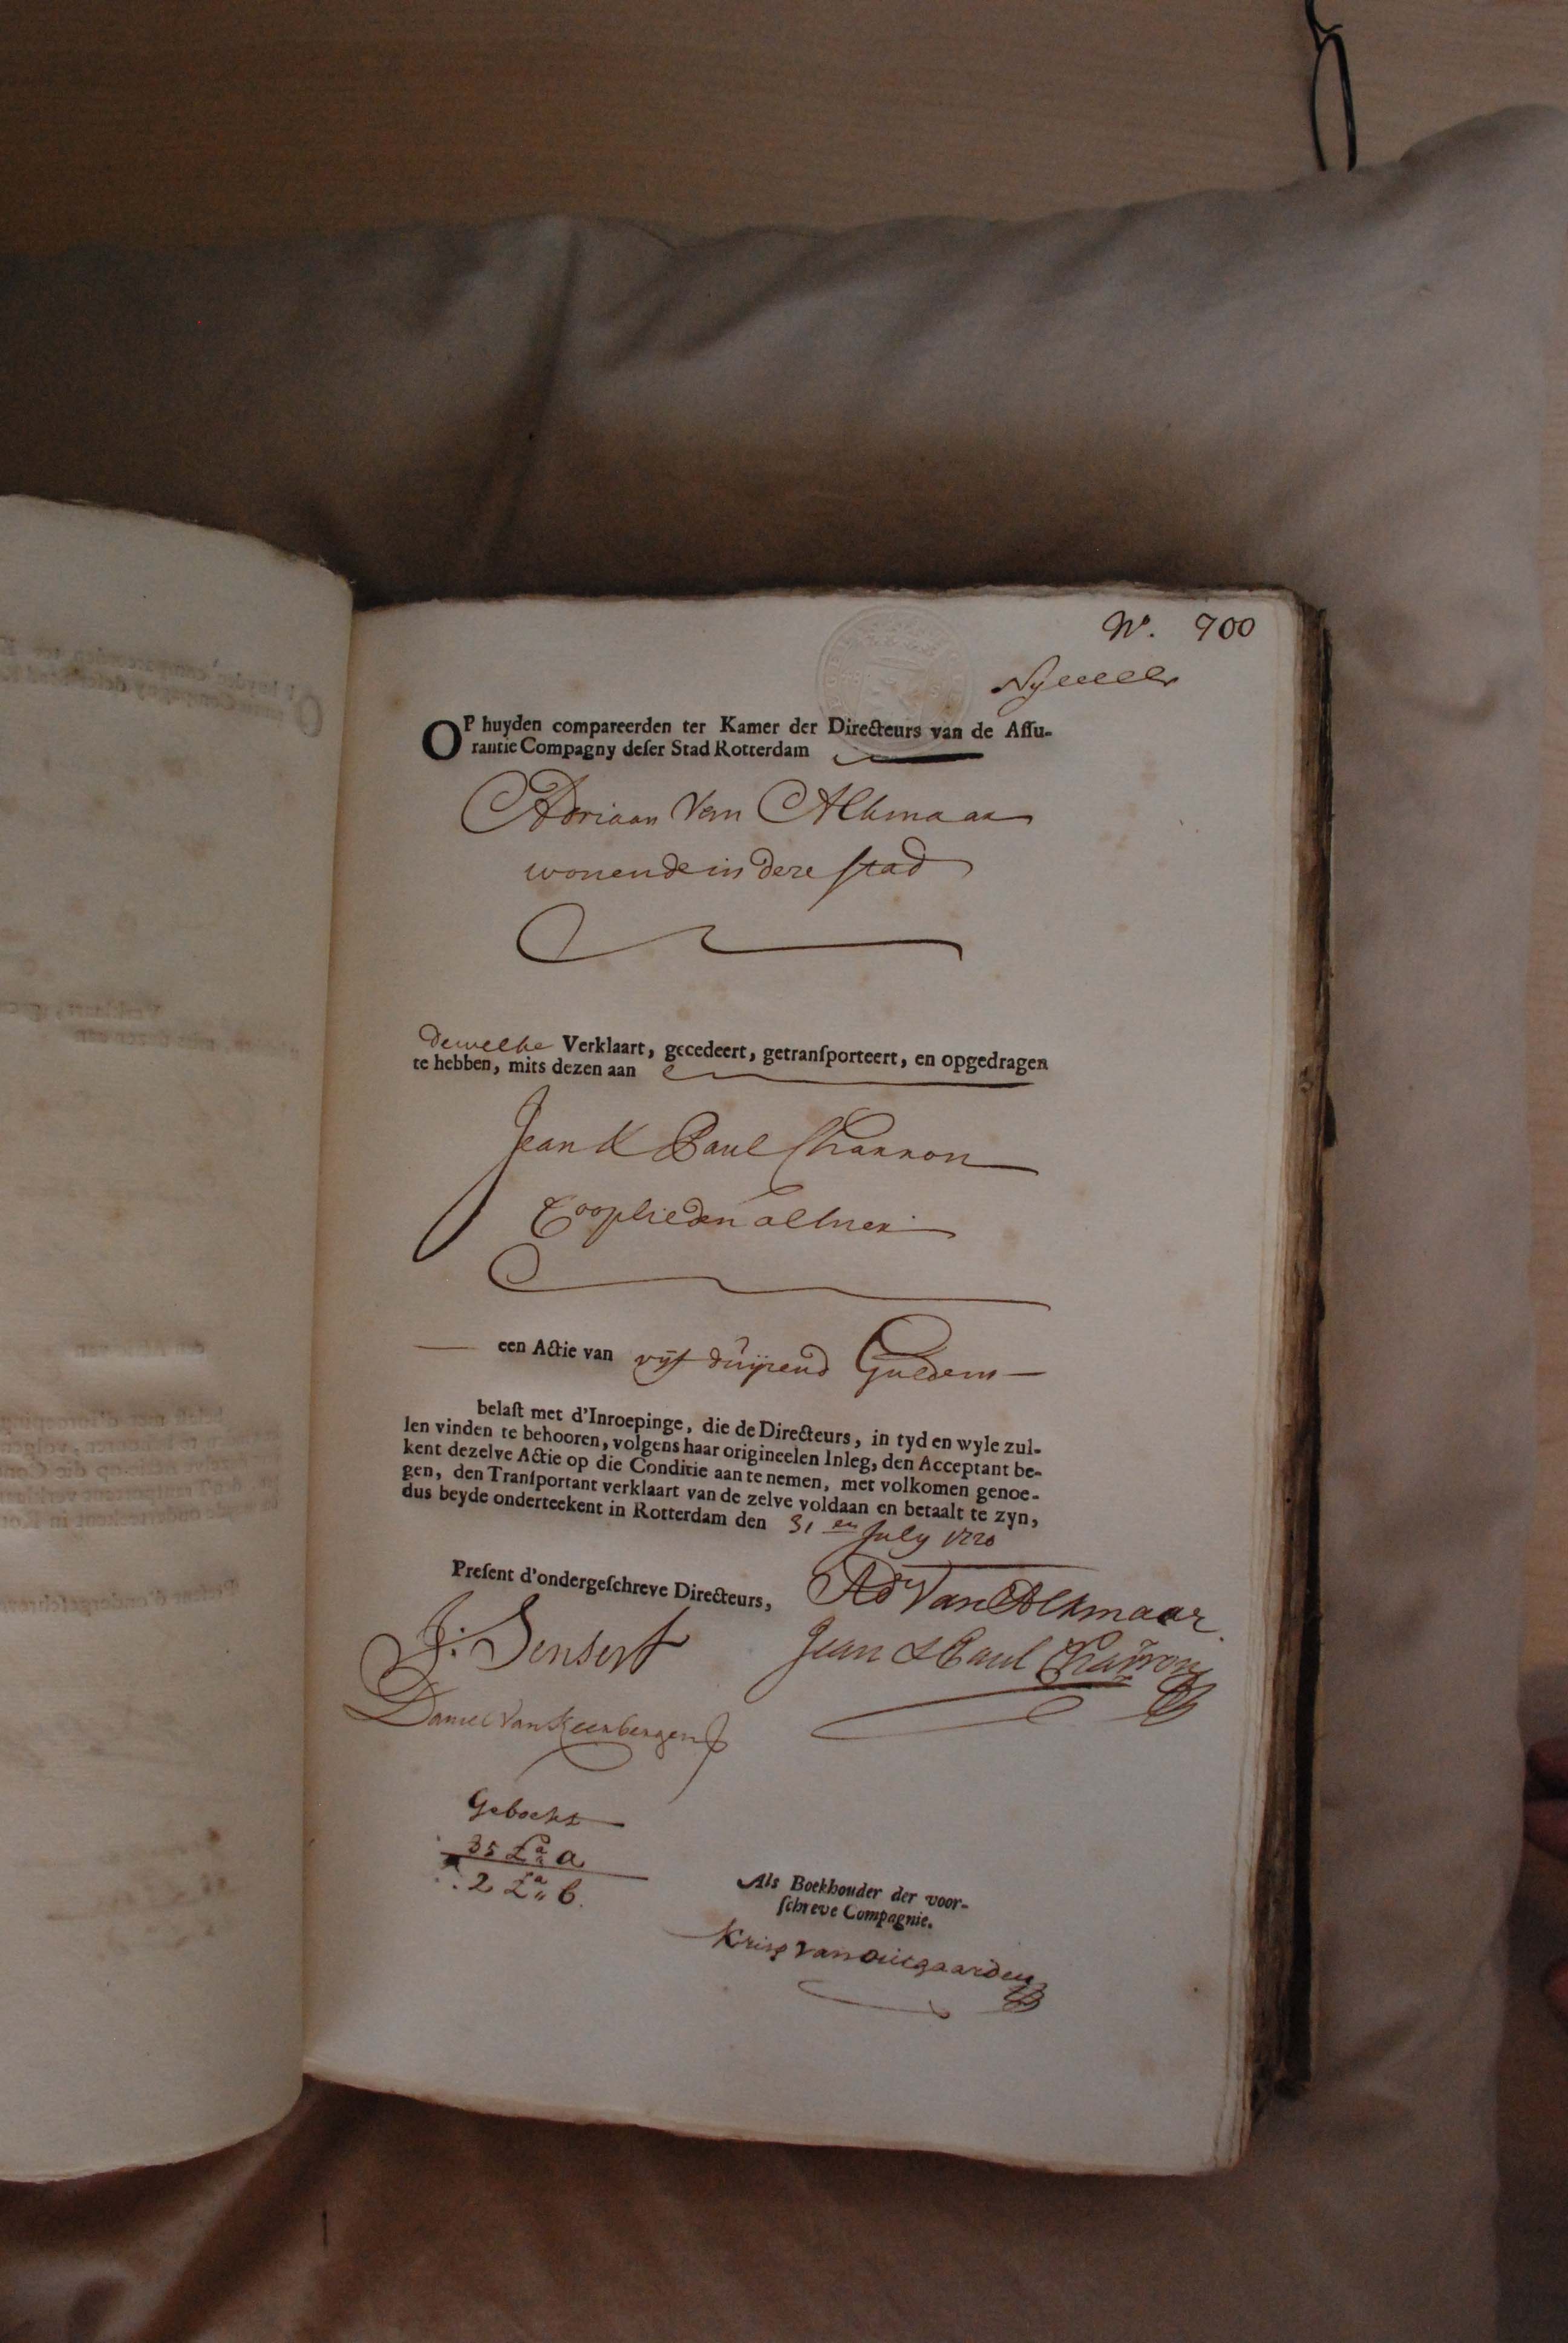 No. 700
OP huyden compareerden ter Kamer der Directeurs van de Assu-
rantie Compagny deser Stad Rotterdam
Adriaan Van Alkmaar
wonende in deze stad
dewelke Verklaart, gecedeert, getransporteert, en opgedragen
te hebben, mits dezen aan
Jean & Paul Charron
Cooplieden alhier
een Actie van vijf duijzend Guldens
belast met d'Inroepinge, die de Directeurs, in tyd en wyle zul-
len vinden te behooren, volgens haar origineelen Inleg, den Acceptant be-
kent dezelve Actie op die Conditie aan te nemen, met volkomen genoe-
gen, den Transportant verklaart van de zelve voldaan en betaalt te zyn,
dus beyde onderteekent in Rotterdam den 31 en July 1720
Present d'ondergeschreve Directeurs,
Adr Van Alkmaar
J: Senserf
Jean & Paul Charron
Daniel Van Keerbergen
Geboekt
35 La a
2 La b.
Als Boekhouder der voor-
schreve Compagnie.
Krisp van outgaarden